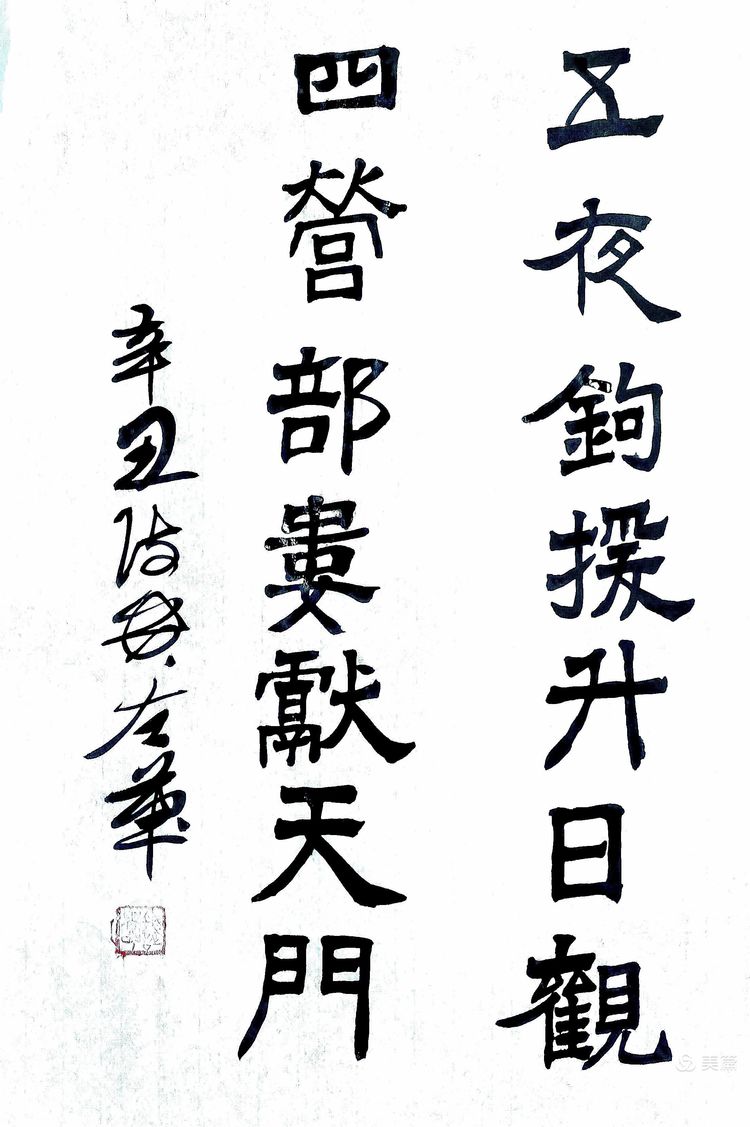 五夜鉤援升日觀
四營部婁獻天門
辛丑 左
美篇